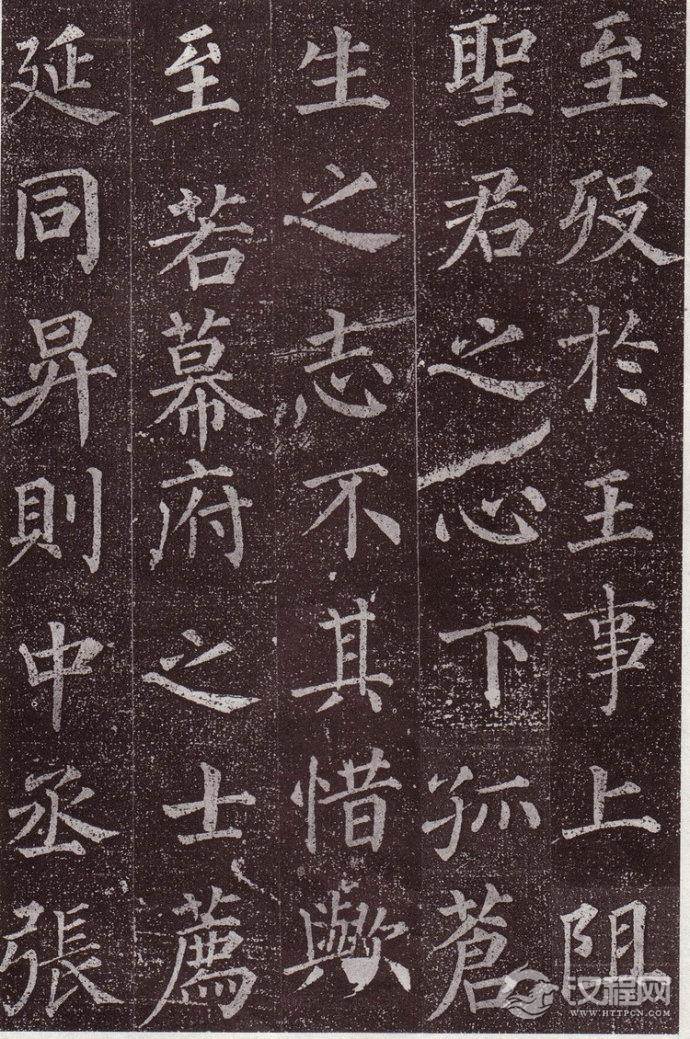 至歿於王事上阻
聖君之心下孤蒼
生之志不其惜歟
至若幕府之士薦
延同昇則中丞張
汉程网
WWW.HTTPCN.COM